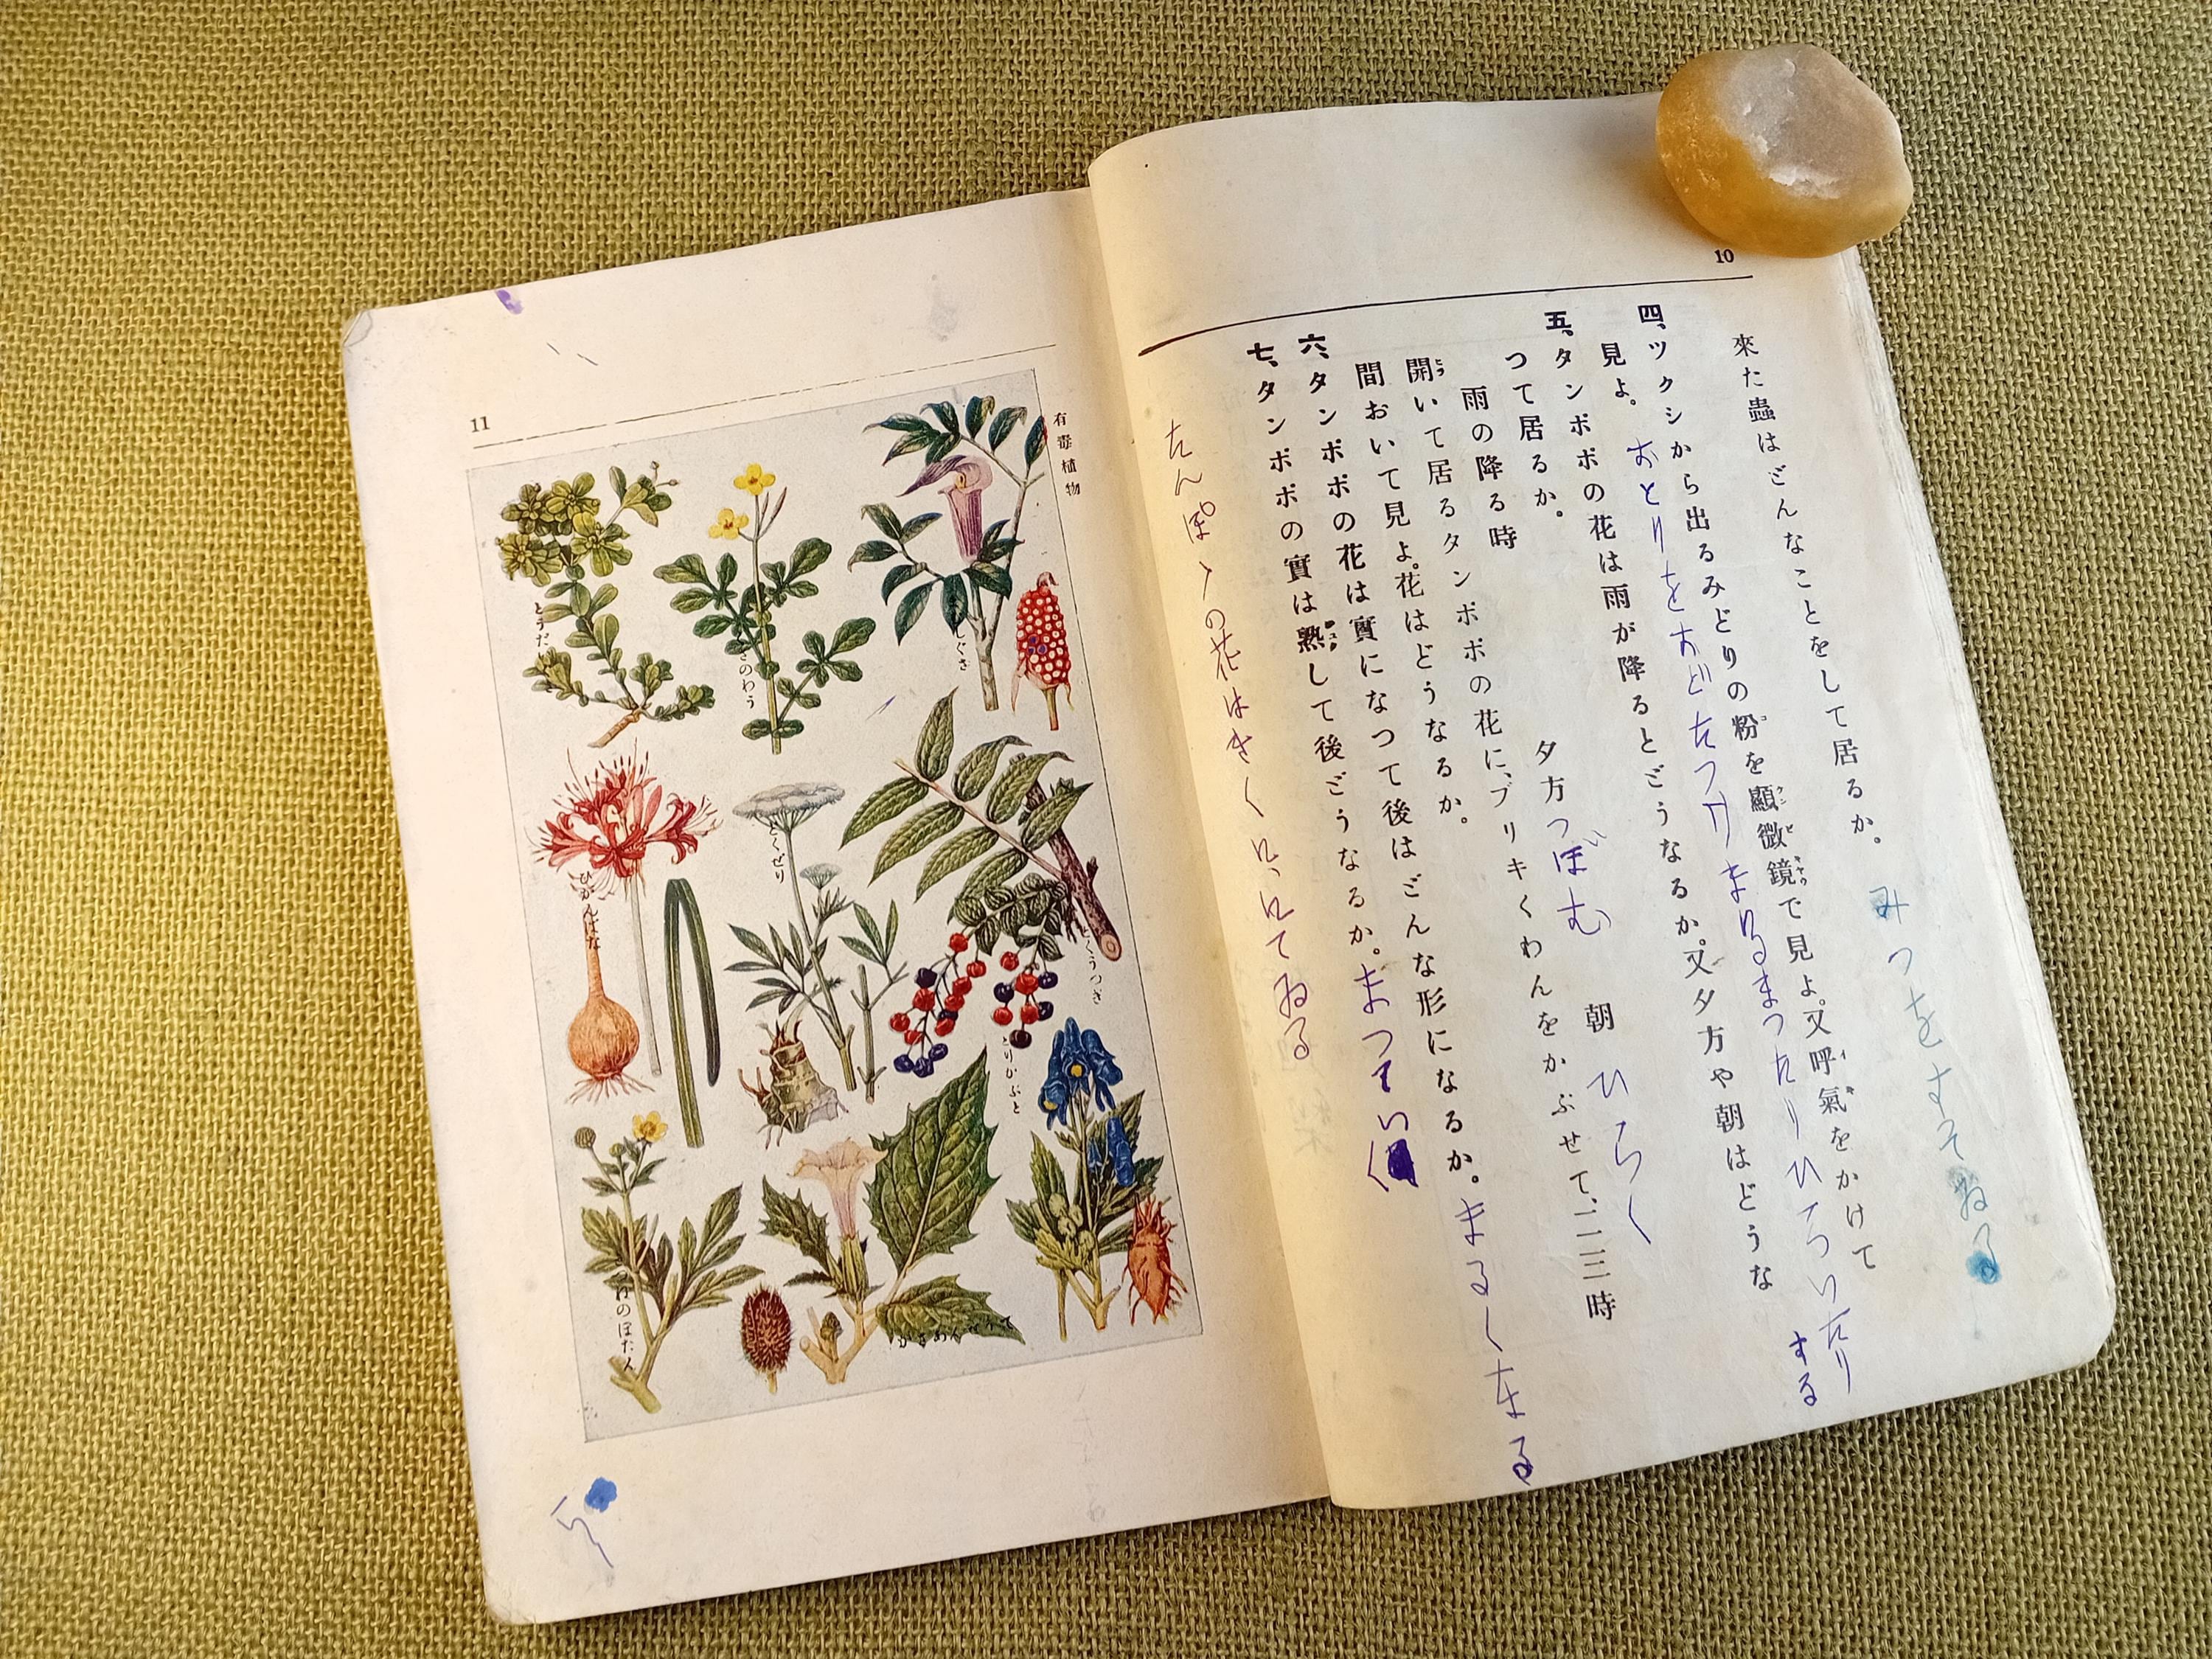 10
來た蟲はどんなことをして居るか。
みつをすつてゐる
四、ツクシから出るみどりの粉を顯微鏡で見よ。又呼氣をかけて
コ
ケンビキヤウ
イキ
見よ。
おとりをおどたつりまりるまつたりひろついたり
する
五、タンポポの花は雨が降るとどうなるか。又夕方や朝はどうな
つて居るか。
夕方つぼむ
朝ひらく
雨の降る時
開いて居るタンポポの花に、ブリキくわんをかぶせて、二三時
間おいて見よ。花はどうなるか。
六、タンポポの花は實になつて後はどんな形になるか。
まるくなる
七、タンポポの實は熟して後どうなるか。
ジユク
まつていく
たんぽゝの花はきくににてゐる
有毒植物
11
とうだい
さのわう
しぐさ
ひがんばな
どくぜり
どくうつぎ
とりかぶと
のぼたん